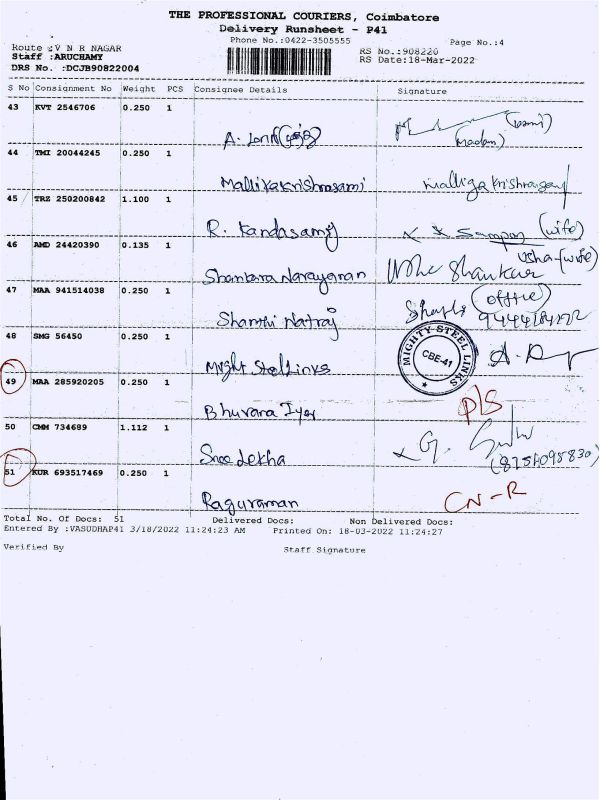 THE PROFESSIONAL COURIERS, Coimbatore
Delivery Runsheet - P41
Phone No.:0422-3505555
Page No.:4
Route :V N R NAGAR
Staff :ARUCHAMY
DRS No. :DCJB90822004
RS No.:908220
RS Date:18-Mar-2022
S No Consignment No Weight PCS Consignee Details Signature
43 KVT 2546706 0.250 1
A. (madam)
44 TMI 20044245 0.250 1
Mallikakrishnasami
45 TRZ 250200842 1.100 1
R. Kandasamy (wife)
46 AMD 24420390 0.135 1
Shankara Narayanan Usha Shankar Usha-(wife)
47 MAA 941514038 0.250 1
Shanthi Natraj (office)
48 SMG 56450 0.250 1
Might Stel Links MIGHTY STEEL LINKS CBE-41
49 MAA 285920205 0.250 1
Bhuvana Iyer P/S
50 CMM 734689 1.112 1
Sree Lekha G.
51 KUR 693517469 0.250 1
Raguraman CN-R
Total No. Of Docs: 51 Delivered Docs: Non Delivered Docs:
Entered By :VASUDHAP41 3/18/2022 11:24:23 AM Printed On: 18-03-2022 11:24:27
Verified By Staff Signature